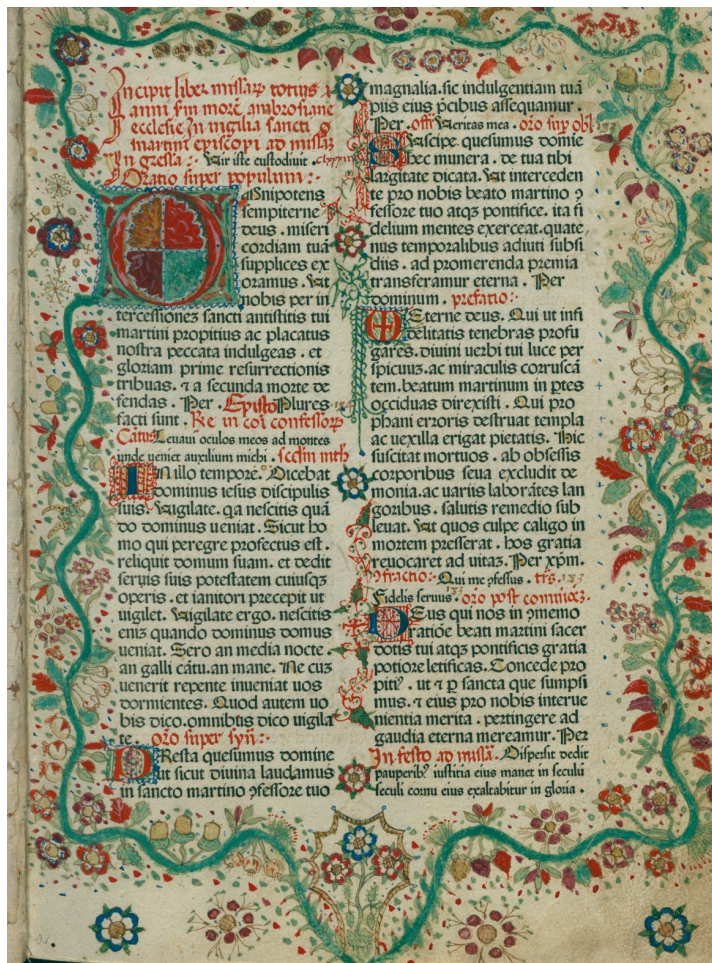 Incipit liber missarꝝ totius
anni ẜm morẽ ambrosiane
ecclesie In vigilia sancti
martini episcopi ad missaꝫ
Ingressa : Uir iste custodiuit .
Oratio super populum :
OMnipotens
sempiterne
deus . miseri
cordiam tuã
supplices ex
oramus . Ut
nobis per in
tercessioneꝫ sancti antistitis tui
martini propitius ac placatus
nostra peccata indulgeas . et
gloriam prime resurrectionis
tribuas . ⁊ a secunda morte de
fendas . Per . Epistola Plures
facti sunt . Re in coi confessoꝝ
Cãtus Leuaui oculos meos ad montes
unde ueniet auxilium michi .
IN illo tempore . Dicebat
dominus iesus discipulis
suis . Uigilate . qa nescitis quã
do dominus ueniat . Sicut ho
mo qui peregre profectus est .
reliquit domum suam . et dedit
seruis suis potestatem cuiusqꝫ
operis . et ianitori precepit ut
uigilet . Uigilate ergo . nescitis
eniꝫ quando dominus domus
ueniat . Sero an media nocte .
an galli cãtu . an mane . Ne cuꝫ
uenerit repente inueniat uos
dormientes . Quod autem uo
bis dico . omnibus dico uigila
te . oro super syñ :
PResta quesumus domine
ut sicut diuina laudamus
in sancto martino ꝯfessore tuo
magnalia . sic indulgentiam tuã
piis eius p̃cibus assequamur .
Per . offi Ueritas mea . oro sup obl
SUscipe quesumus domie
hec munera . de tua tibi
largitate dicata . Ut interceden
te pro nobis beato martino ꝯ
fessore tuo atqꝫ pontifice . ita fi
delium mentes exerceat . quate
nus temporalibus adiuti subsi
diis . ad promerenda premia
transferamur eterna . Per
dominum . prefatio :
ETerne deus . Qui ut infi
delitatis tenebras profu
gares . diuini uerbi tui luce per
spicuuꝫ . ac miraculis corruscã
tem . beatum martinum in ꝑtes
occiduas direxisti . Qui pro
phani erroris destruat templa
ac uexilla erigat pietatis . Hic
suscitat mortuos . ab obsessis
corporibus seua excludit de
monia . ac uariis laborãtes lan
goribus . salutis remedio sub
leuat . Ut quos culpe caligo in
mortem presserat . hos gratia
reuocaret ad uitaꝫ . Per xp̃m .
ꝯfractio : Qui me ꝯfessus . trs̃ .
Fidelis seruus . oro post comnioeꝫ .
DEus qui nos in ꝯmemo
ratiõe beati martini sacer
dotis tui atqꝫ pontificis gratia
potiore letificas . Concede pro
pitiꝰ . ut ⁊ ꝑ sancta que sumpsi
mus . ⁊ eius pro nobis interue
nientia merita . pertingere ad
gaudia eterna mereamur . Per
In festo ad missã . Dispersit dedit
pauperibꝰ iustitia eius manet in seculũ
seculi cornu eius exaltabitur in gloria .